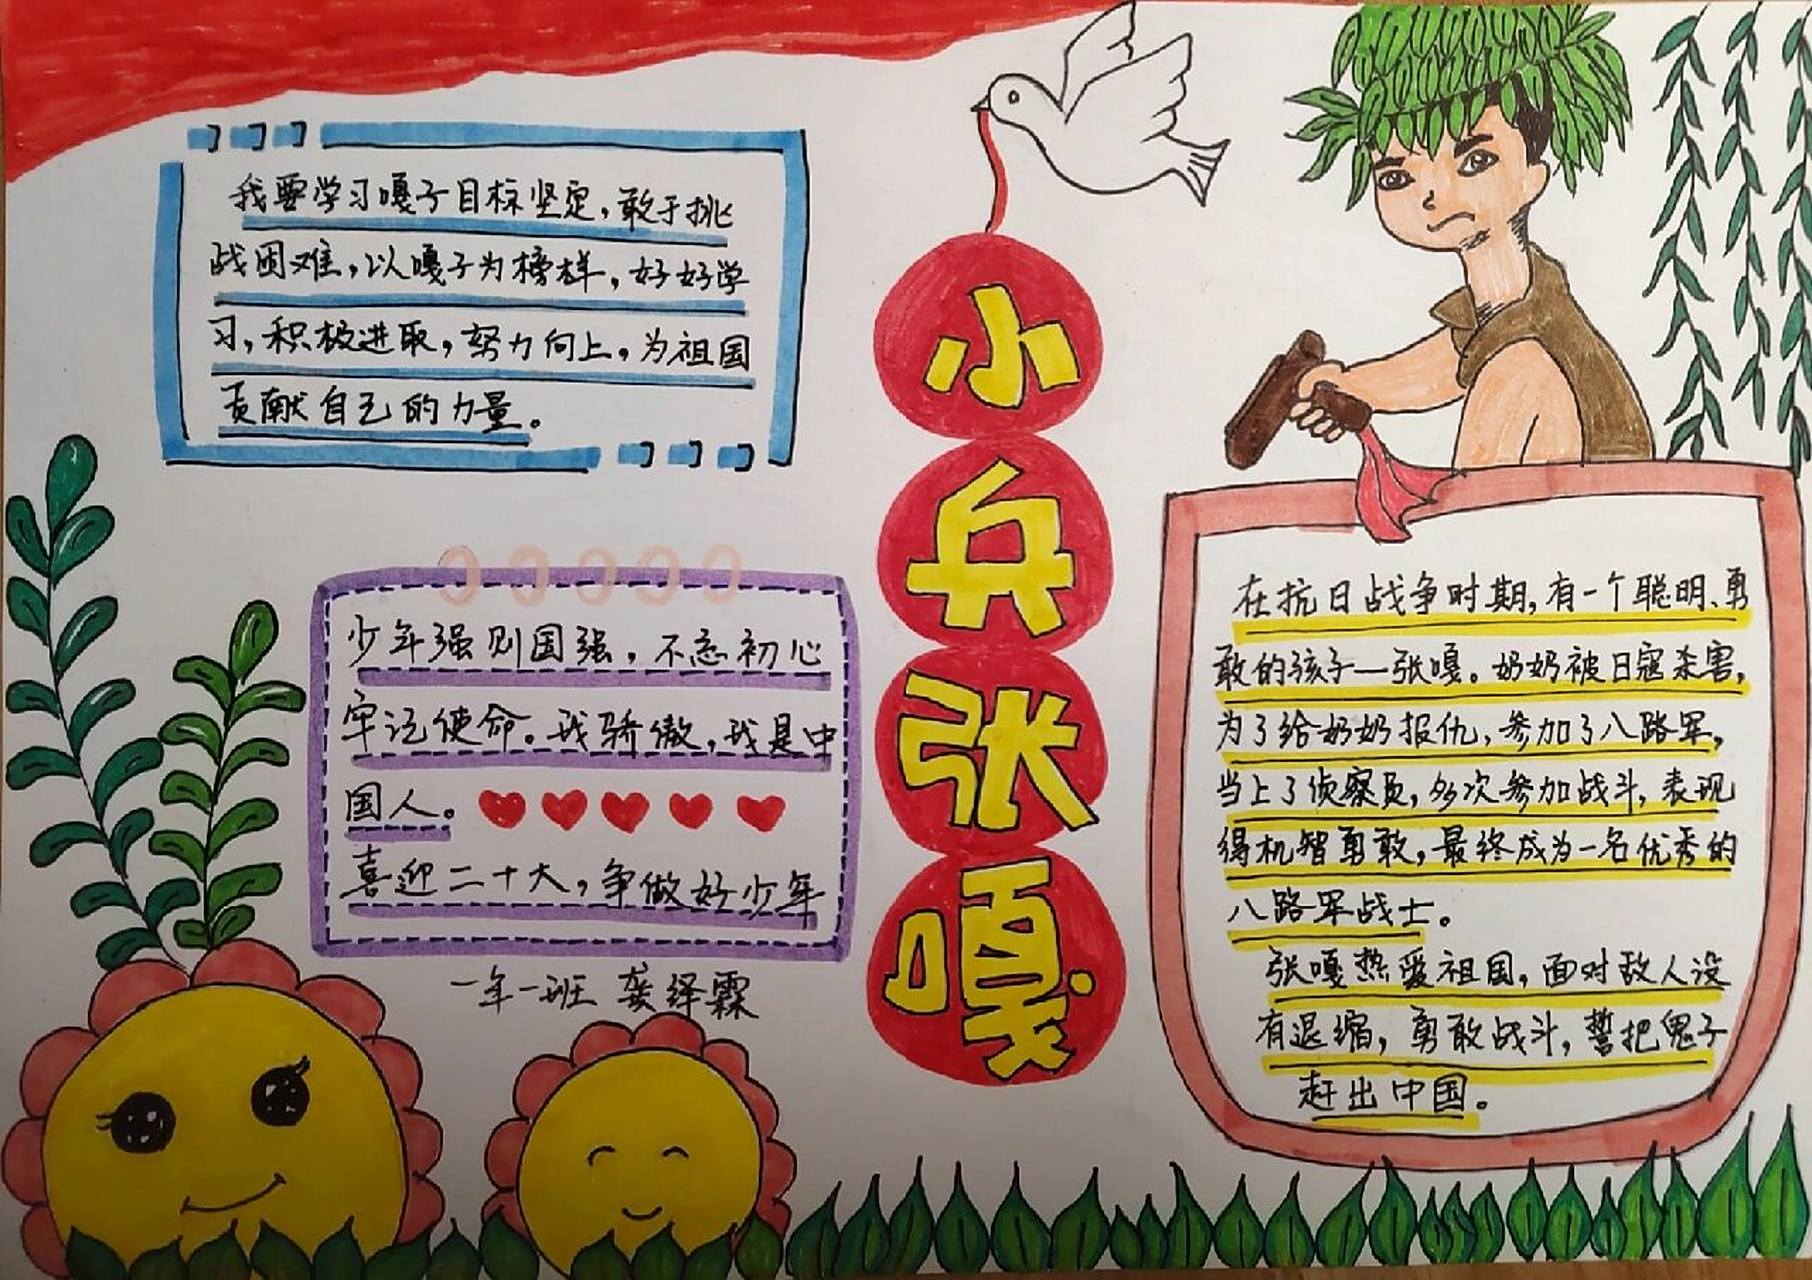 我要学习嘎子目标坚定，敢于挑
战困难，以嘎子为榜样，好好学
习，积极进取，努力向上，为祖国
贡献自己的力量。
少年强则国强，不忘初心
牢记使命。我骄傲，我是中
国人。
喜迎二十大，争做好少年
一年一班 龚绎霖
小
兵
张
嘎
在抗日战争时期，有一个聪明、勇
敢的孩子—张嘎。奶奶被日寇杀害，
为了给奶奶报仇，参加了八路军，
当上了侦察员，多次参加战斗，表现
得机智勇敢，最终成为一名优秀的
八路军战士。
张嘎热爱祖国，面对敌人没
有退缩，勇敢战斗，誓把鬼子
赶出中国。